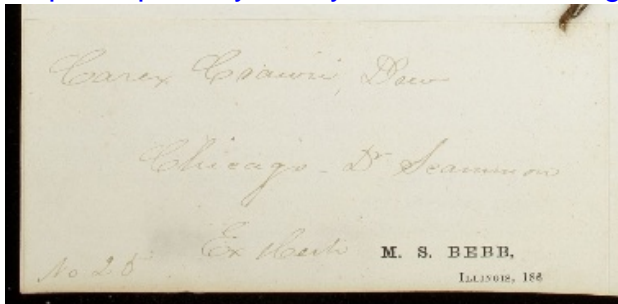 Carex Crawei, Dew
Chicago - Dr Scammon
Ex Herb M. S. BEBB,
No 28 ILLINOIS, 186